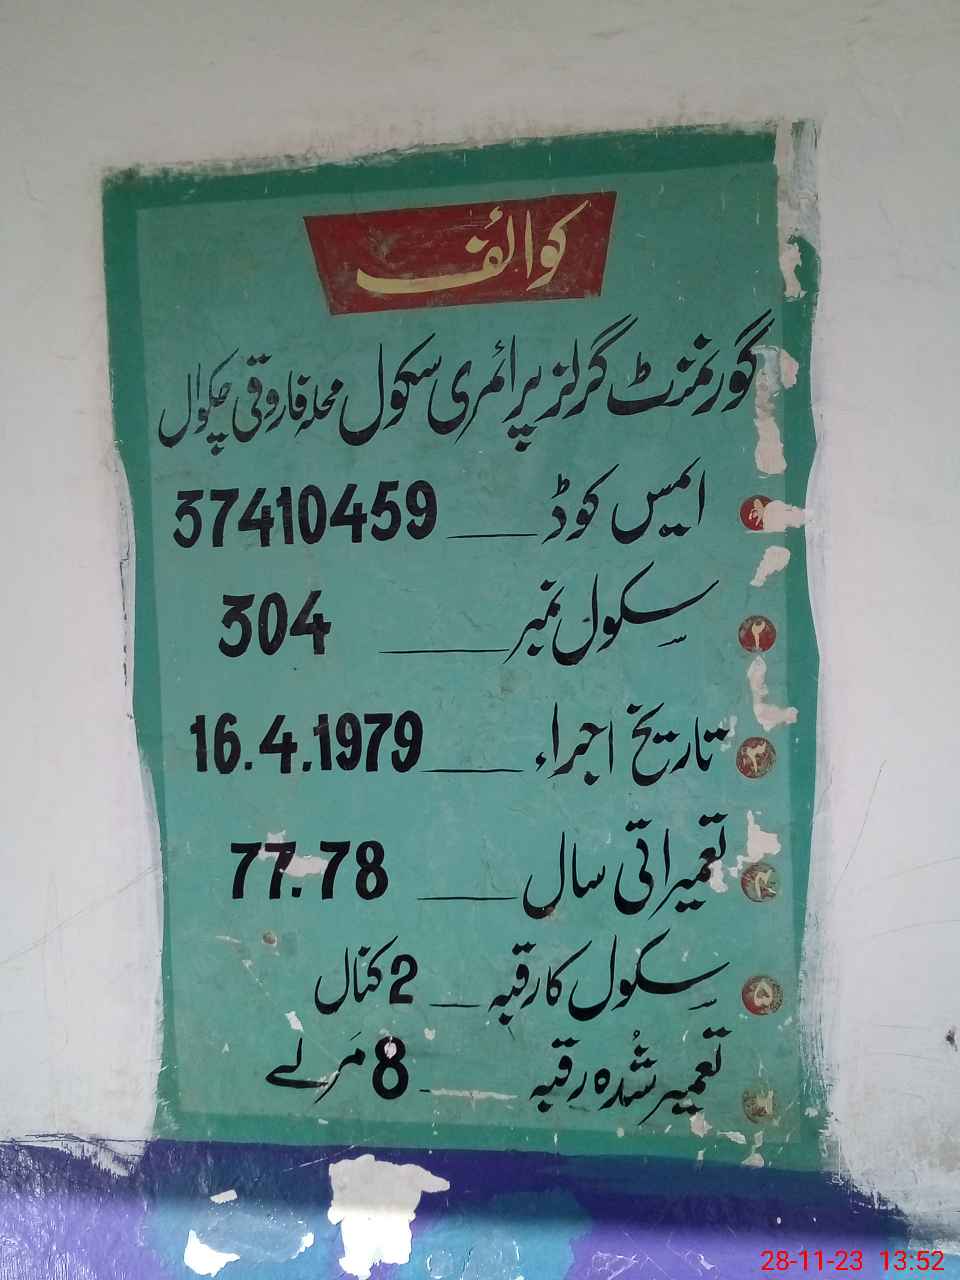 کوائف
گورنمنٹ گرلز پرائمری سکول محلہ فاروقی چکوال
ایمس کوڈ ــــ 37410459
۲ سکول نمبر ــــ 304
۳ تاریخ اجراء ــــ 16.4.1979
۴ تعمیراتی سال ــــ 77.78
۵ سکول کا رقبہ ــــ 2 کنال
تعمیر شُدہ رقبہ ــــ 8 مَرلے
28-11-23 13:52